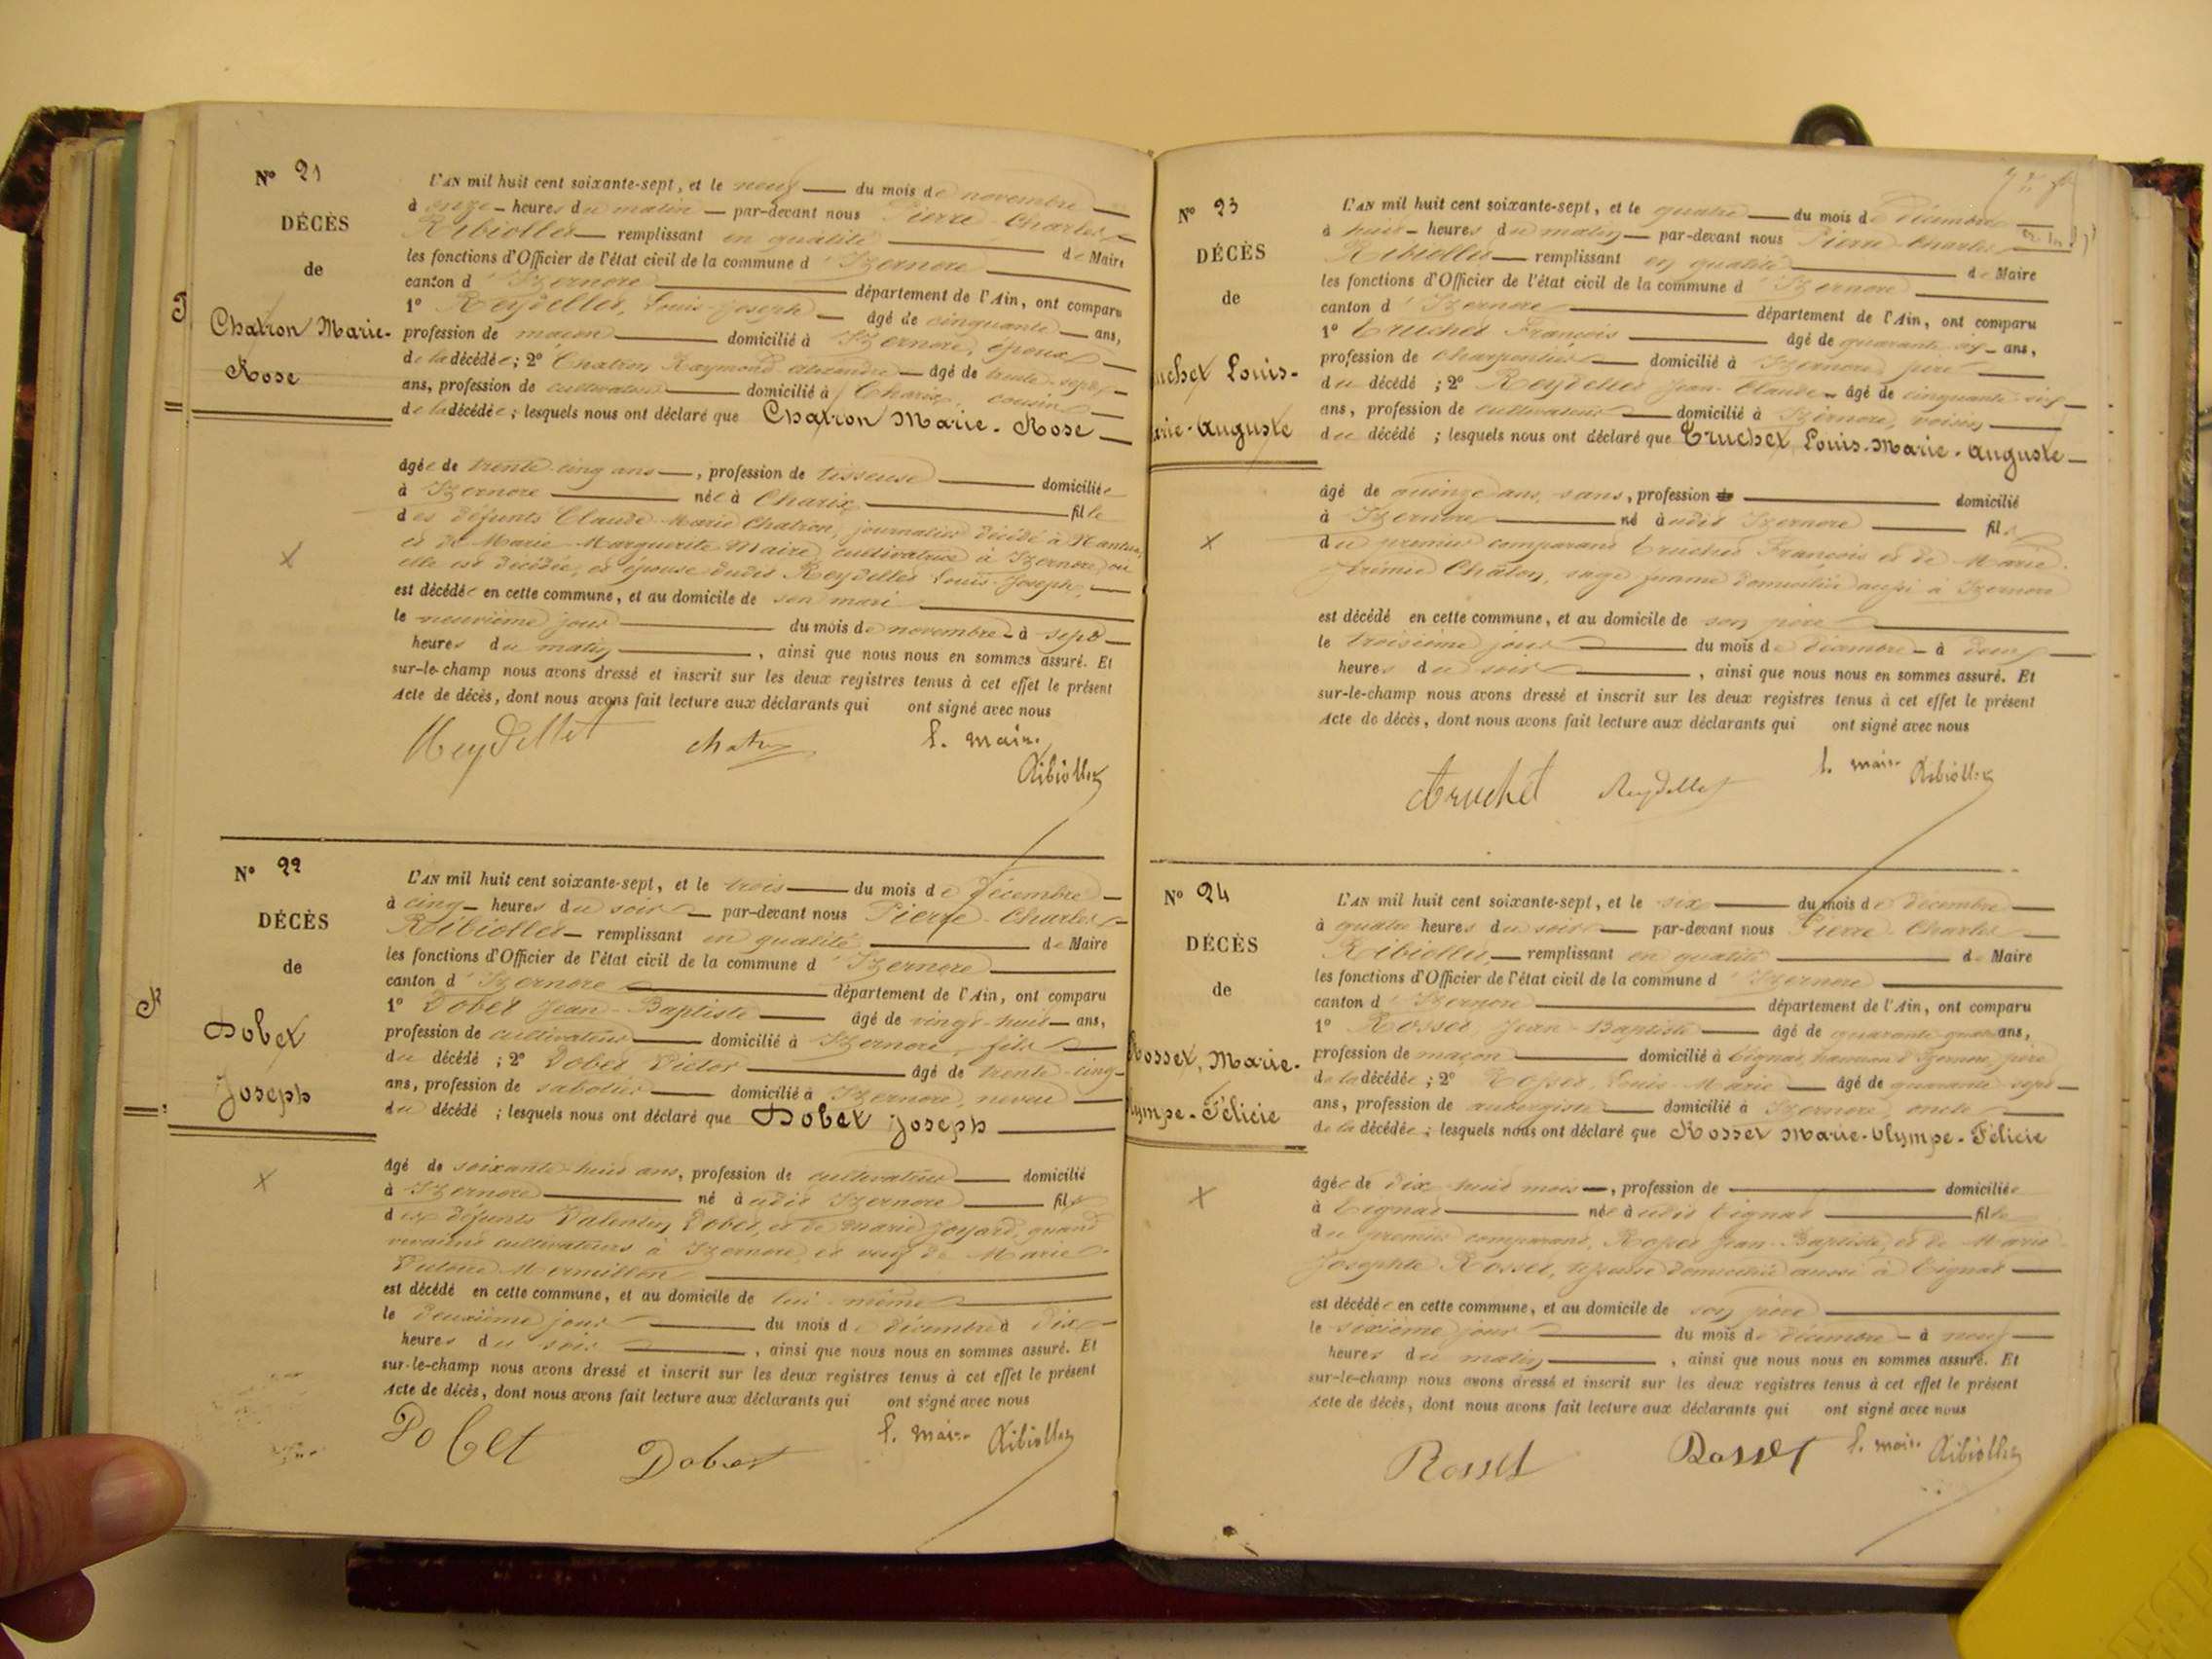 Nº 21
DÉCÈS
de
Chatron Marie-
Rose
L'AN mil huit cent soixante-sept, et le neuf du mois de novembre
à onze heures du matin par-devant nous Pierre-Charles
Ribiollet remplissant en qualité de Maire
les fonctions d'Officier de l'état civil de la commune d'Izernore
canton d'Izernore département de l'Ain, ont comparu
1º Reydellet, Louis-Joseph âgé de cinquante ans,
profession de maçon domicilié à Izernore, époux
de la décédée; 2º Chatron Raymond Alexandre âgé de trente-sept
ans, profession de cultivateur domicilié à Charix, cousin
de la décédée; lesquels nous ont déclaré que Chatron Marie-Rose
âgée de trente-cinq ans, profession de tisseuse domiciliée
à Izernore née à Charix fille
des défunts Claude-Marie Chatron, journalier décédé à Nantua,
et de Marie Marguerite Maire, cultivatrice à Izernore où
elle est décédée, et épouse dudit Reydellet Louis-Joseph,
est décédée en cette commune, et au domicile de son mari
le neuvième jour du mois de novembre à sept
heures du matin, ainsi que nous nous en sommes assuré. Et
sur-le-champ nous avons dressé et inscrit sur les deux registres tenus à cet effet le présent
Acte de décès, dont nous avons fait lecture aux déclarants qui ont signé avec nous
Reydellet Chatron l. maire
Ribiollet
Nº 22
DÉCÈS
de
Dobet
Joseph
L'AN mil huit cent soixante-sept, et le trois du mois de décembre
à cinq heures du soir par-devant nous Pierre-Charles
Ribiollet remplissant en qualité de Maire
les fonctions d'Officier de l'état civil de la commune d'Izernore
canton d'Izernore département de l'Ain, ont comparu
1º Dobet Jean-Baptiste âgé de vingt-huit ans,
profession de cultivateur domicilié à Izernore, fils
du décédé; 2º Dobet Victor âgé de trente-cinq
ans, profession de sabotier domicilié à Izernore, neveu
du décédé; lesquels nous ont déclaré que Dobet Joseph
âgé de soixante-huit ans, profession de cultivateur domicilié
à Izernore né à udit Izernore fils
des défunts Valentin Dobet, et de Marie Joyard, quand
vivaient cultivateurs à Izernore, et veuf de Marie
Mermillon
est décédé en cette commune, et au domicile de lui-même
le deuxième jour du mois de décembre à dix
heures du soir, ainsi que nous nous en sommes assuré. Et
sur-le-champ nous avons dressé et inscrit sur les deux registres tenus à cet effet le présent
Acte de décès, dont nous avons fait lecture aux déclarants qui ont signé avec nous
Dobet Dobet l. maire Ribiollet
Nº 23
DÉCÈS
de
uchet Louis-
arie-Auguste
L'AN mil huit cent soixante-sept, et le quatre du mois de décembre
à huit heures du matin par-devant nous Pierre-Charles
Ribiollet remplissant en qualité de Maire
les fonctions d'Officier de l'état civil de la commune d'Izernore
canton d'Izernore département de l'Ain, ont comparu
1º Truchet François âgé de quarante-six ans,
profession de charpentier domicilié à Izernore, père
du décédé; 2º Reydellet Jean-Claude âgé de cinquante-six
ans, profession de cultivateur domicilié à Izernore, voisin
du décédé; lesquels nous ont déclaré que Truchet, Louis-Marie-Auguste
âgé de quinze ans, sans, profession de domicilié
à Izernore né à udit Izernore fils
du premier comparant Truchet François et de Marie
Chaton, sage femme domiciliée aussi à Izernore
est décédé en cette commune, et au domicile de son père
le troisième jour du mois de décembre à deux
heures du soir, ainsi que nous nous en sommes assuré. Et
sur-le-champ nous avons dressé et inscrit sur les deux registres tenus à cet effet le présent
Acte de décès, dont nous avons fait lecture aux déclarants qui ont signé avec nous
Truchet Reydellet l. maire Ribiollet
Nº 24
DÉCÈS
de
Rosset, Marie-
lympe-Félicie
L'AN mil huit cent soixante-sept, et le six du mois de décembre
à quatre heures du soir par-devant nous Pierre-Charles
Ribiollet remplissant en qualité de Maire
les fonctions d'Officier de l'état civil de la commune d'Izernore
canton d'Izernore département de l'Ain, ont comparu
1º Rosset, Jean-Baptiste âgé de quarante-quatre ans,
profession de maçon domicilié à Tignat, hameau d'Izernore, père
de la décédée; 2º Rosset, Louis-Marie âgé de quarante-sept
ans, profession de aubergiste domicilié à Izernore, oncle
de la décédée; lesquels nous ont déclaré que Rosset Marie-Olympe-Félicie
âgée de dix-huit mois, profession de domiciliée
à Tignat née à udit Tignat fille
du premier comparant, Rosset Jean-Baptiste, et de Marie
Josephte Rosset, épouse domiciliée aussi à Tignat
est décédée en cette commune, et au domicile de son père
le sixième jour du mois de décembre à neuf
heures du matin, ainsi que nous nous en sommes assuré. Et
sur-le-champ nous avons dressé et inscrit sur les deux registres tenus à cet effet le présent
Acte de décès, dont nous avons fait lecture aux déclarants qui ont signé avec nous
Rosset Rosset l. maire Ribiollet